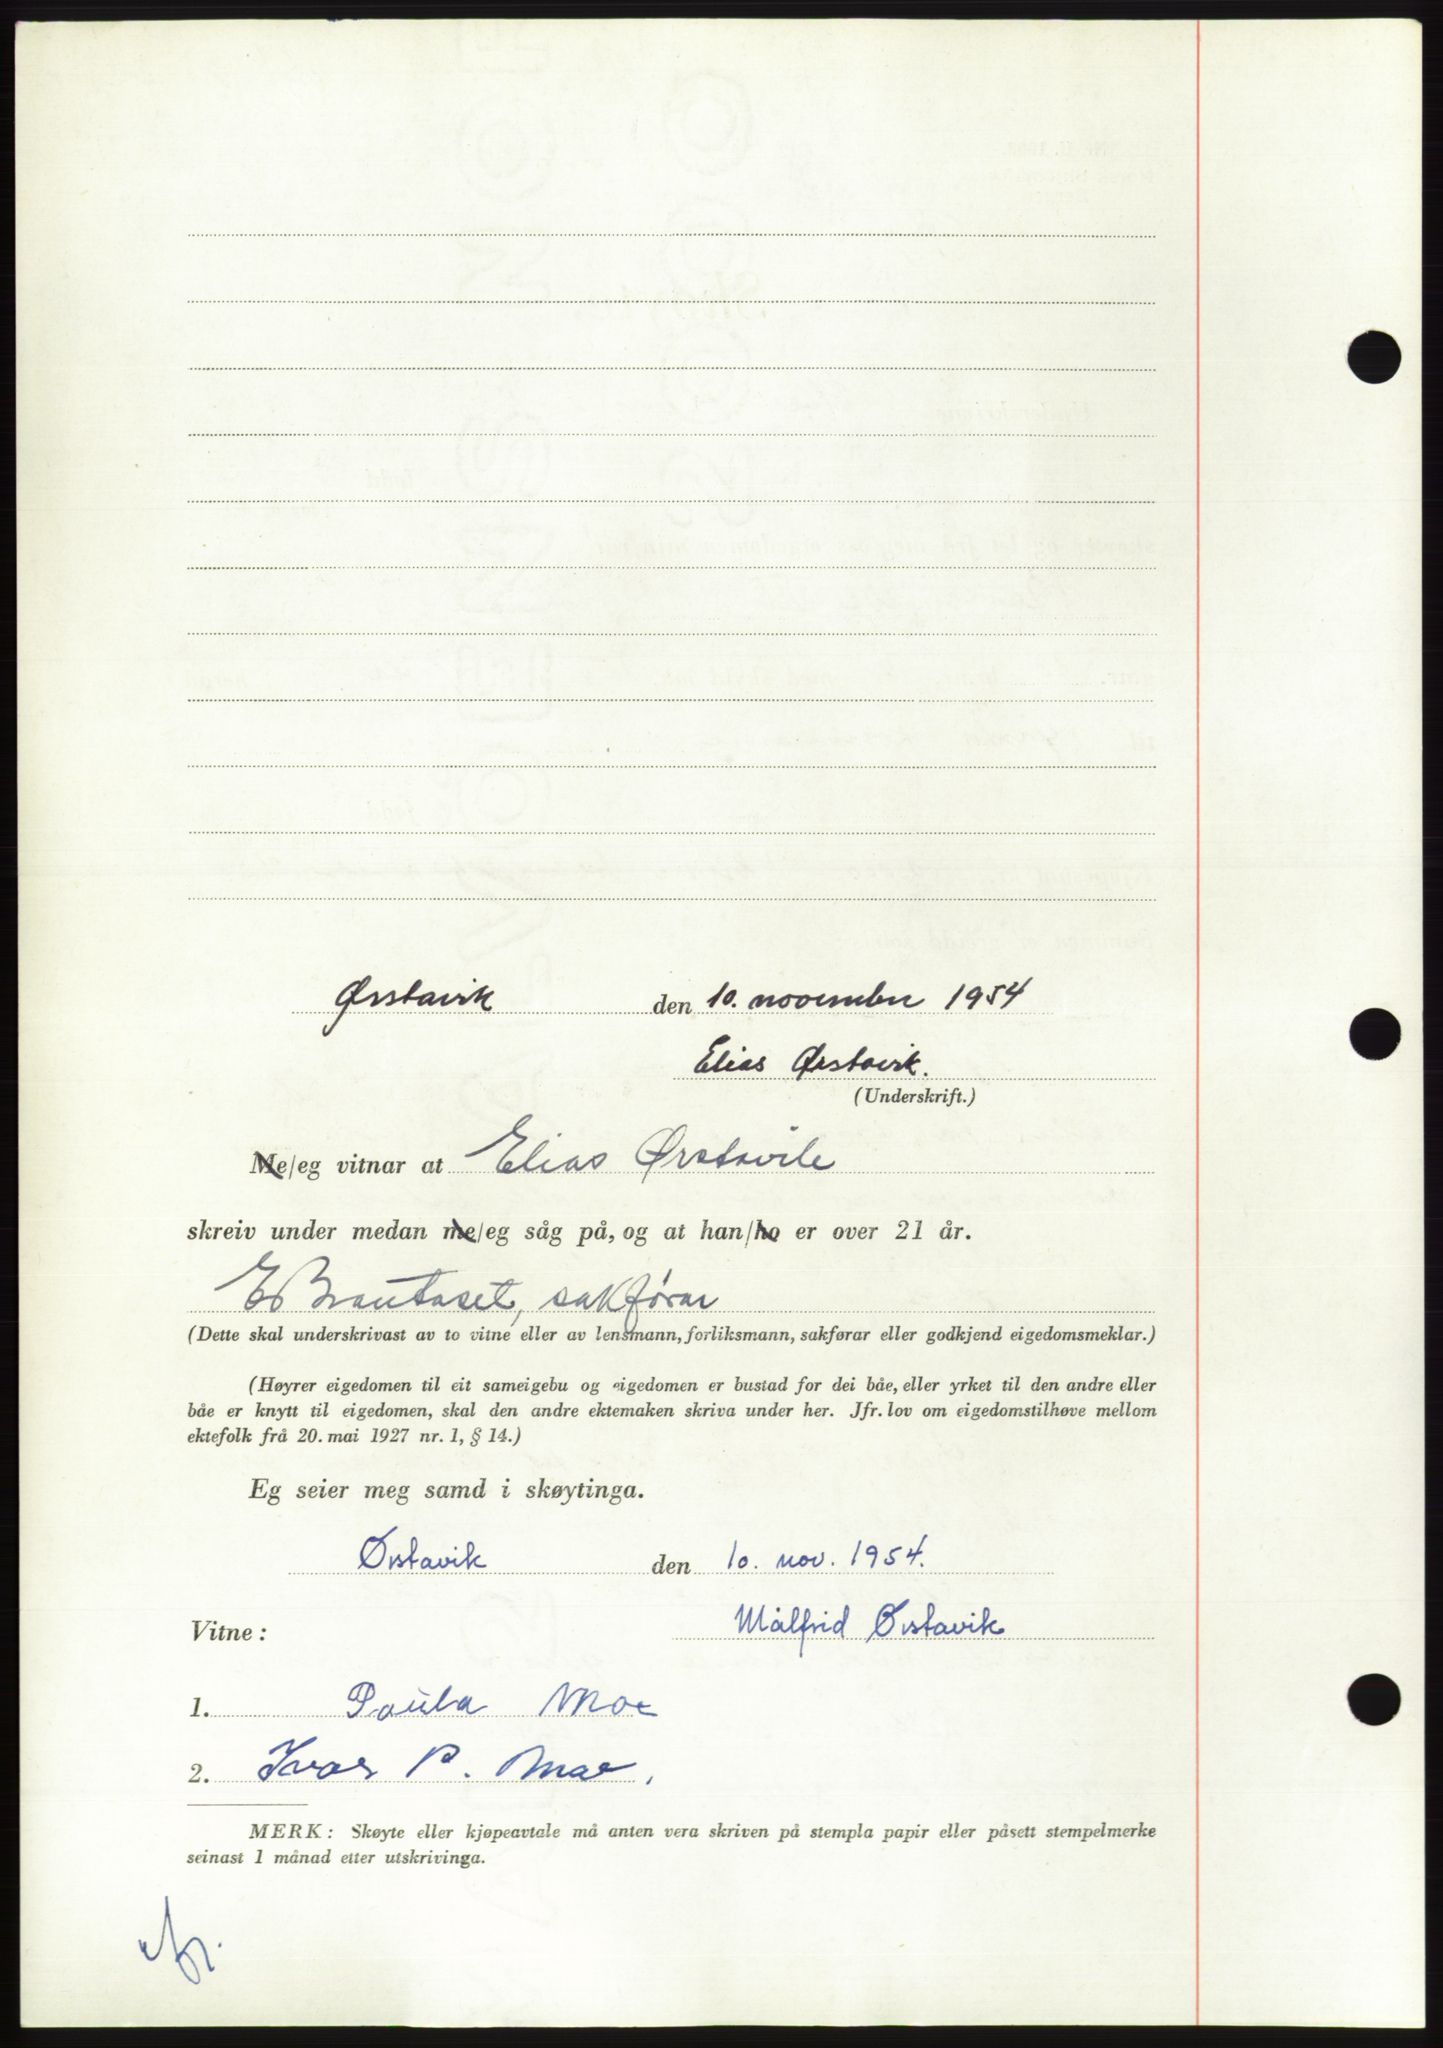 Ørstavik den 10. november 1954
Elias Ørstavik.
(Underskrift.)
Me/eg vitnar at Elias Ørstavik
skreiv under medan me/eg såg på, og at han/ho er over 21 år.
sakførar
(Dette skal underskrivast av to vitne eller av lensmann, forliksmann, sakførar eller godkjend eigedomsmeklar.)
(Høyrer eigedomen til eit sameigebu og eigedomen er bustad for dei båe, eller yrket til den andre eller
båe er knytt til eigedomen, skal den andre ektemaken skriva under her. Jfr. lov om eigedomstilhøve mellom
ektefolk frå 20. mai 1927 nr. 1, § 14.)
Eg seier meg samd i skøytinga.
Ørstavik den 10. nov. 1954.
Vitne: Målfrid Ørstavik
1. Paula Moe
2. Ivar P. Moe.
MERK: Skøyte eller kjøpeavtale må anten vera skriven på stempla papir eller påsett stempelmerke
seinast 1 månad etter utskrivinga.